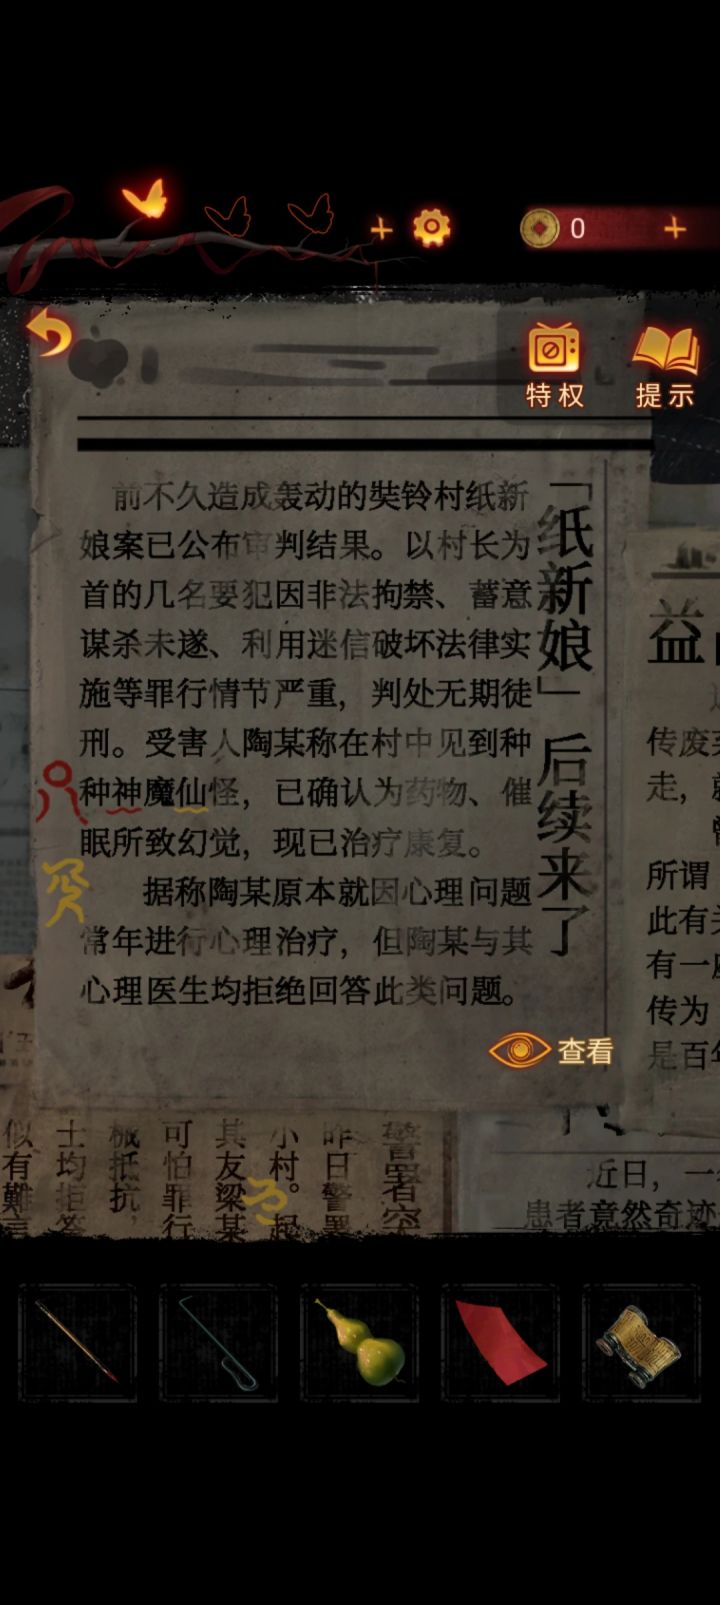 0
特权
提示
「纸新娘」后续来了
前不久造成轰动的奘铃村纸新
娘案已公布审判结果。以村长为
首的几名要犯因非法拘禁、蓄意
谋杀未遂、利用迷信破坏法律实
施等罪行情节严重，判处无期徒
刑。受害人陶某称在村中见到种
种神魔仙怪，已确认为药物、催
眠所致幻觉，现已治疗康复。
据称陶某原本就因心理问题
常年进行心理治疗，但陶某与其
心理医生均拒绝回答此类问题。
查看
益
传废
走，
所谓
此有
有一
传为
是百
警署
昨日警署
小村。起
其友梁某
可怕罪行
械抵抗，
士均拒答
似有難言
近日，一
患者竟然奇迹